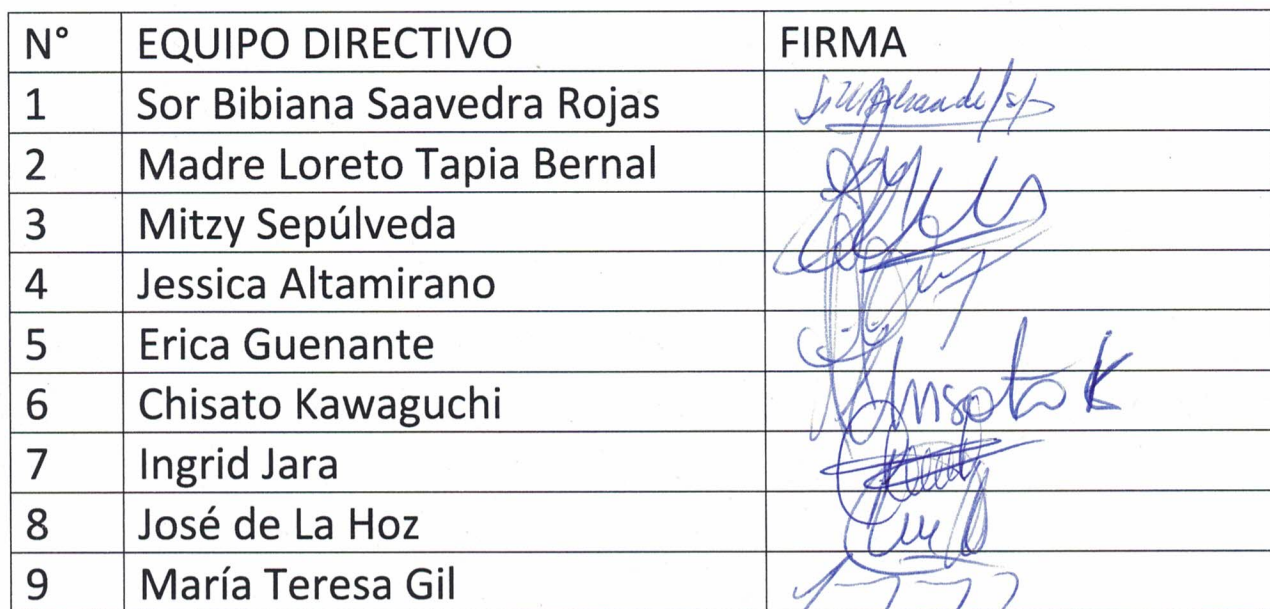 N° EQUIPO DIRECTIVO FIRMA
1 Sor Bibiana Saavedra Rojas
2 Madre Loreto Tapia Bernal
3 Mitzy Sepúlveda
4 Jessica Altamirano
5 Erica Guenante
6 Chisato Kawaguchi
7 Ingrid Jara
8 José de La Hoz
9 María Teresa Gil